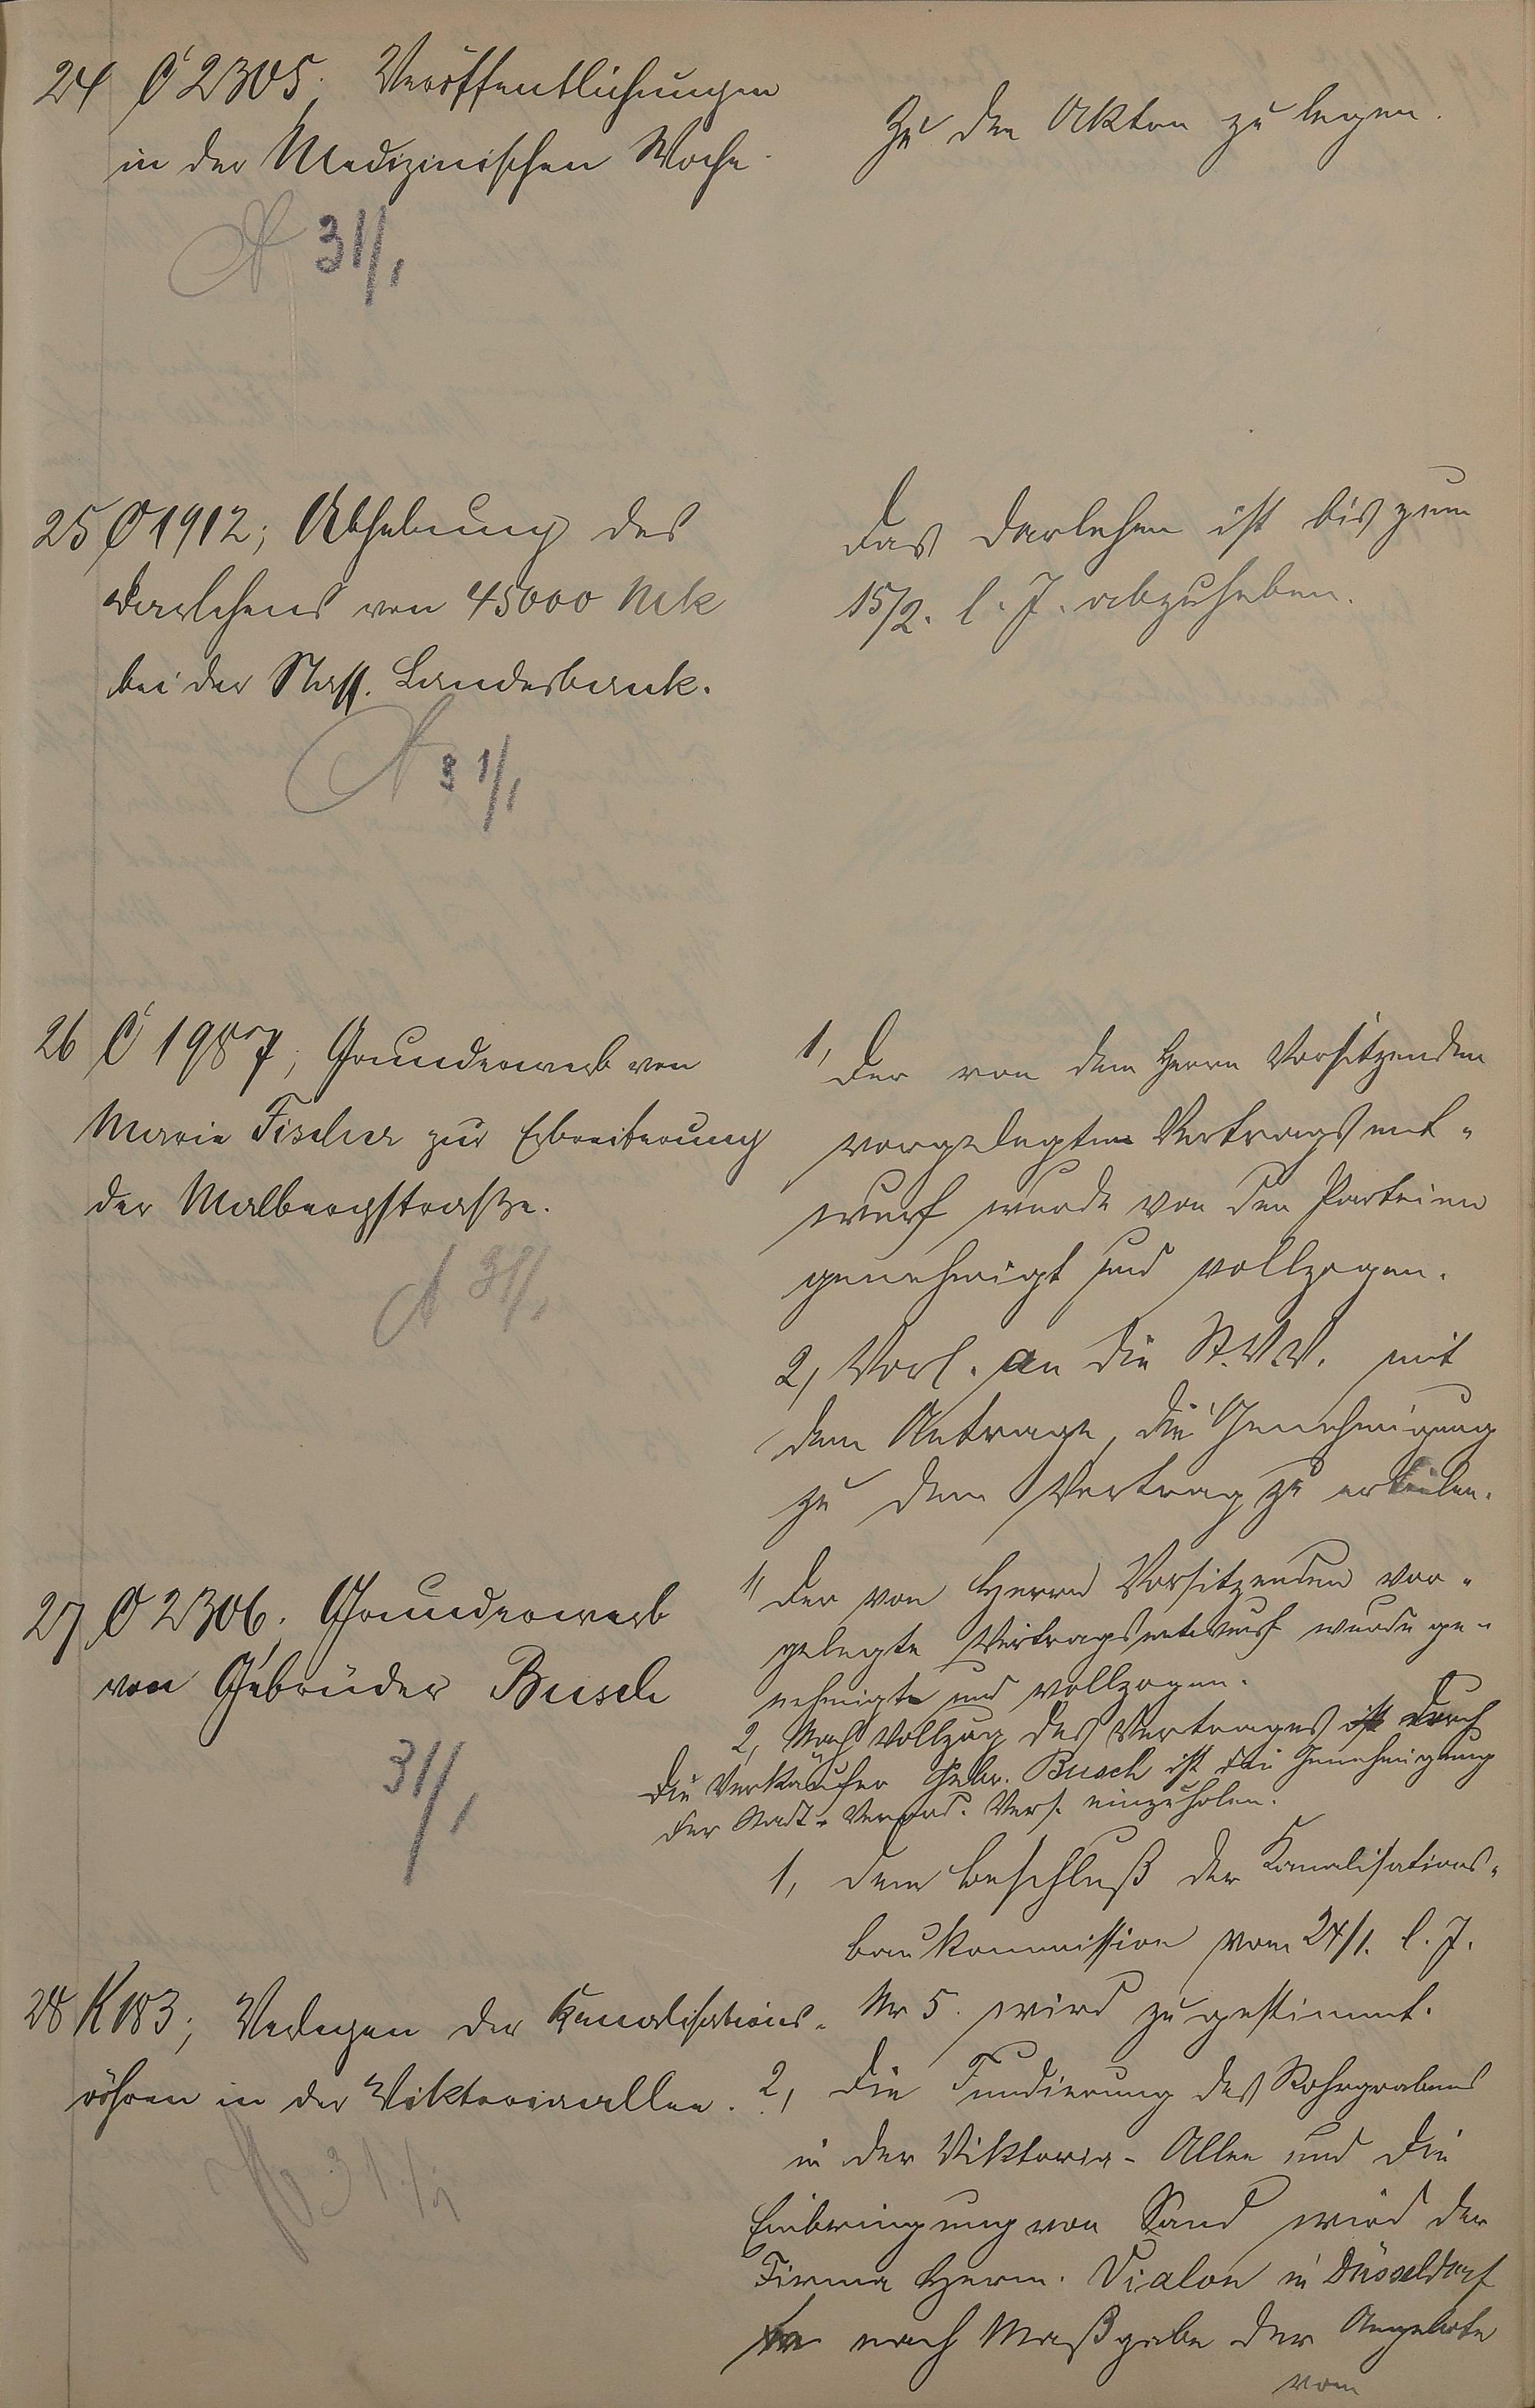 24 C 2305. Veröffentlichungen
in der Medizinischen Woche.
31/1
Zu den Akten zu legen.
25 C 1912; Abhebung des
Darlehens von 45000 Mk
bei der Nass. Landesbank.
31/1
Das Darlehen ist bis zum
15/2. l. J. abzuheben.
26 C 1987, Grunderwerb von
Marie Fischer zur Erbreiterung
der Malbergstraße.
31/1
1, Der von dem Herrn Vorsitzenden
vorgelegte Vertragsent-
wurf wurde von den Parteien
genehmigt und vollzogen.
2, Vorl. an die St.V.V. mit
dem Antrage, die Genehmigung
zu dem Vertrag zu erteilen.
27 C 2306. Grunderwerb
von Gebrüder Busch
31/1
1, Der von Herrn Vorsitzenden vor-
gelegte Vertragsentwurf wurde ge-
nehmigt und vollzogen.
2, Nach Vollzug des Vertrages ist durch
die Verkäufer Gebr. Busch ist die Genehmigung
der Stadt-Verord. Vers. einzuholen.
28 K 183; Verlegen der Kanalisations-
röhren in der Viktoriaallee.
31/1
1, Dem Beschluß der Kanalisations-
baukommission vom 24/1. l. J.
Nr 5. wird zugestimmt.
2, Die Fundierung des Rohrgrabens
in der Viktoria-Allee und die
Einbringung von Sand wird der
Firma Herm. Vialon in Düsseldorf
nach Maßgabe der Angebote
vom